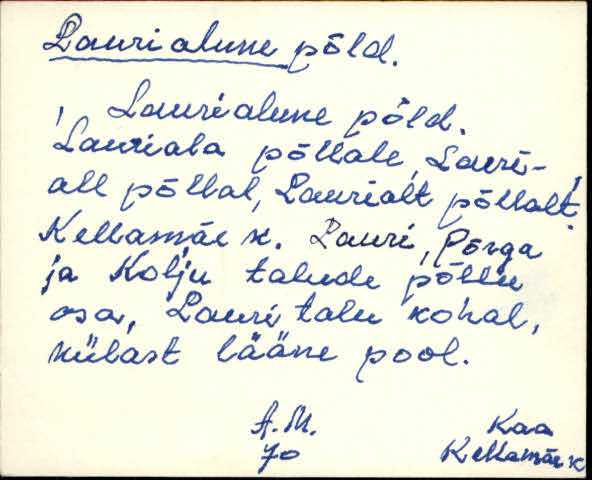 Laurialune põld.
Laurialune põld.
Lauriala põllale, Lauri-
all põllal, Laurialt põllalt.
Kellamäe k. Lauri, Põrga
ja Kolju talude põllu
osa, Lauri talu kohal,
külast lääne pool.
A.M. Kaa
70 Kellamäe k